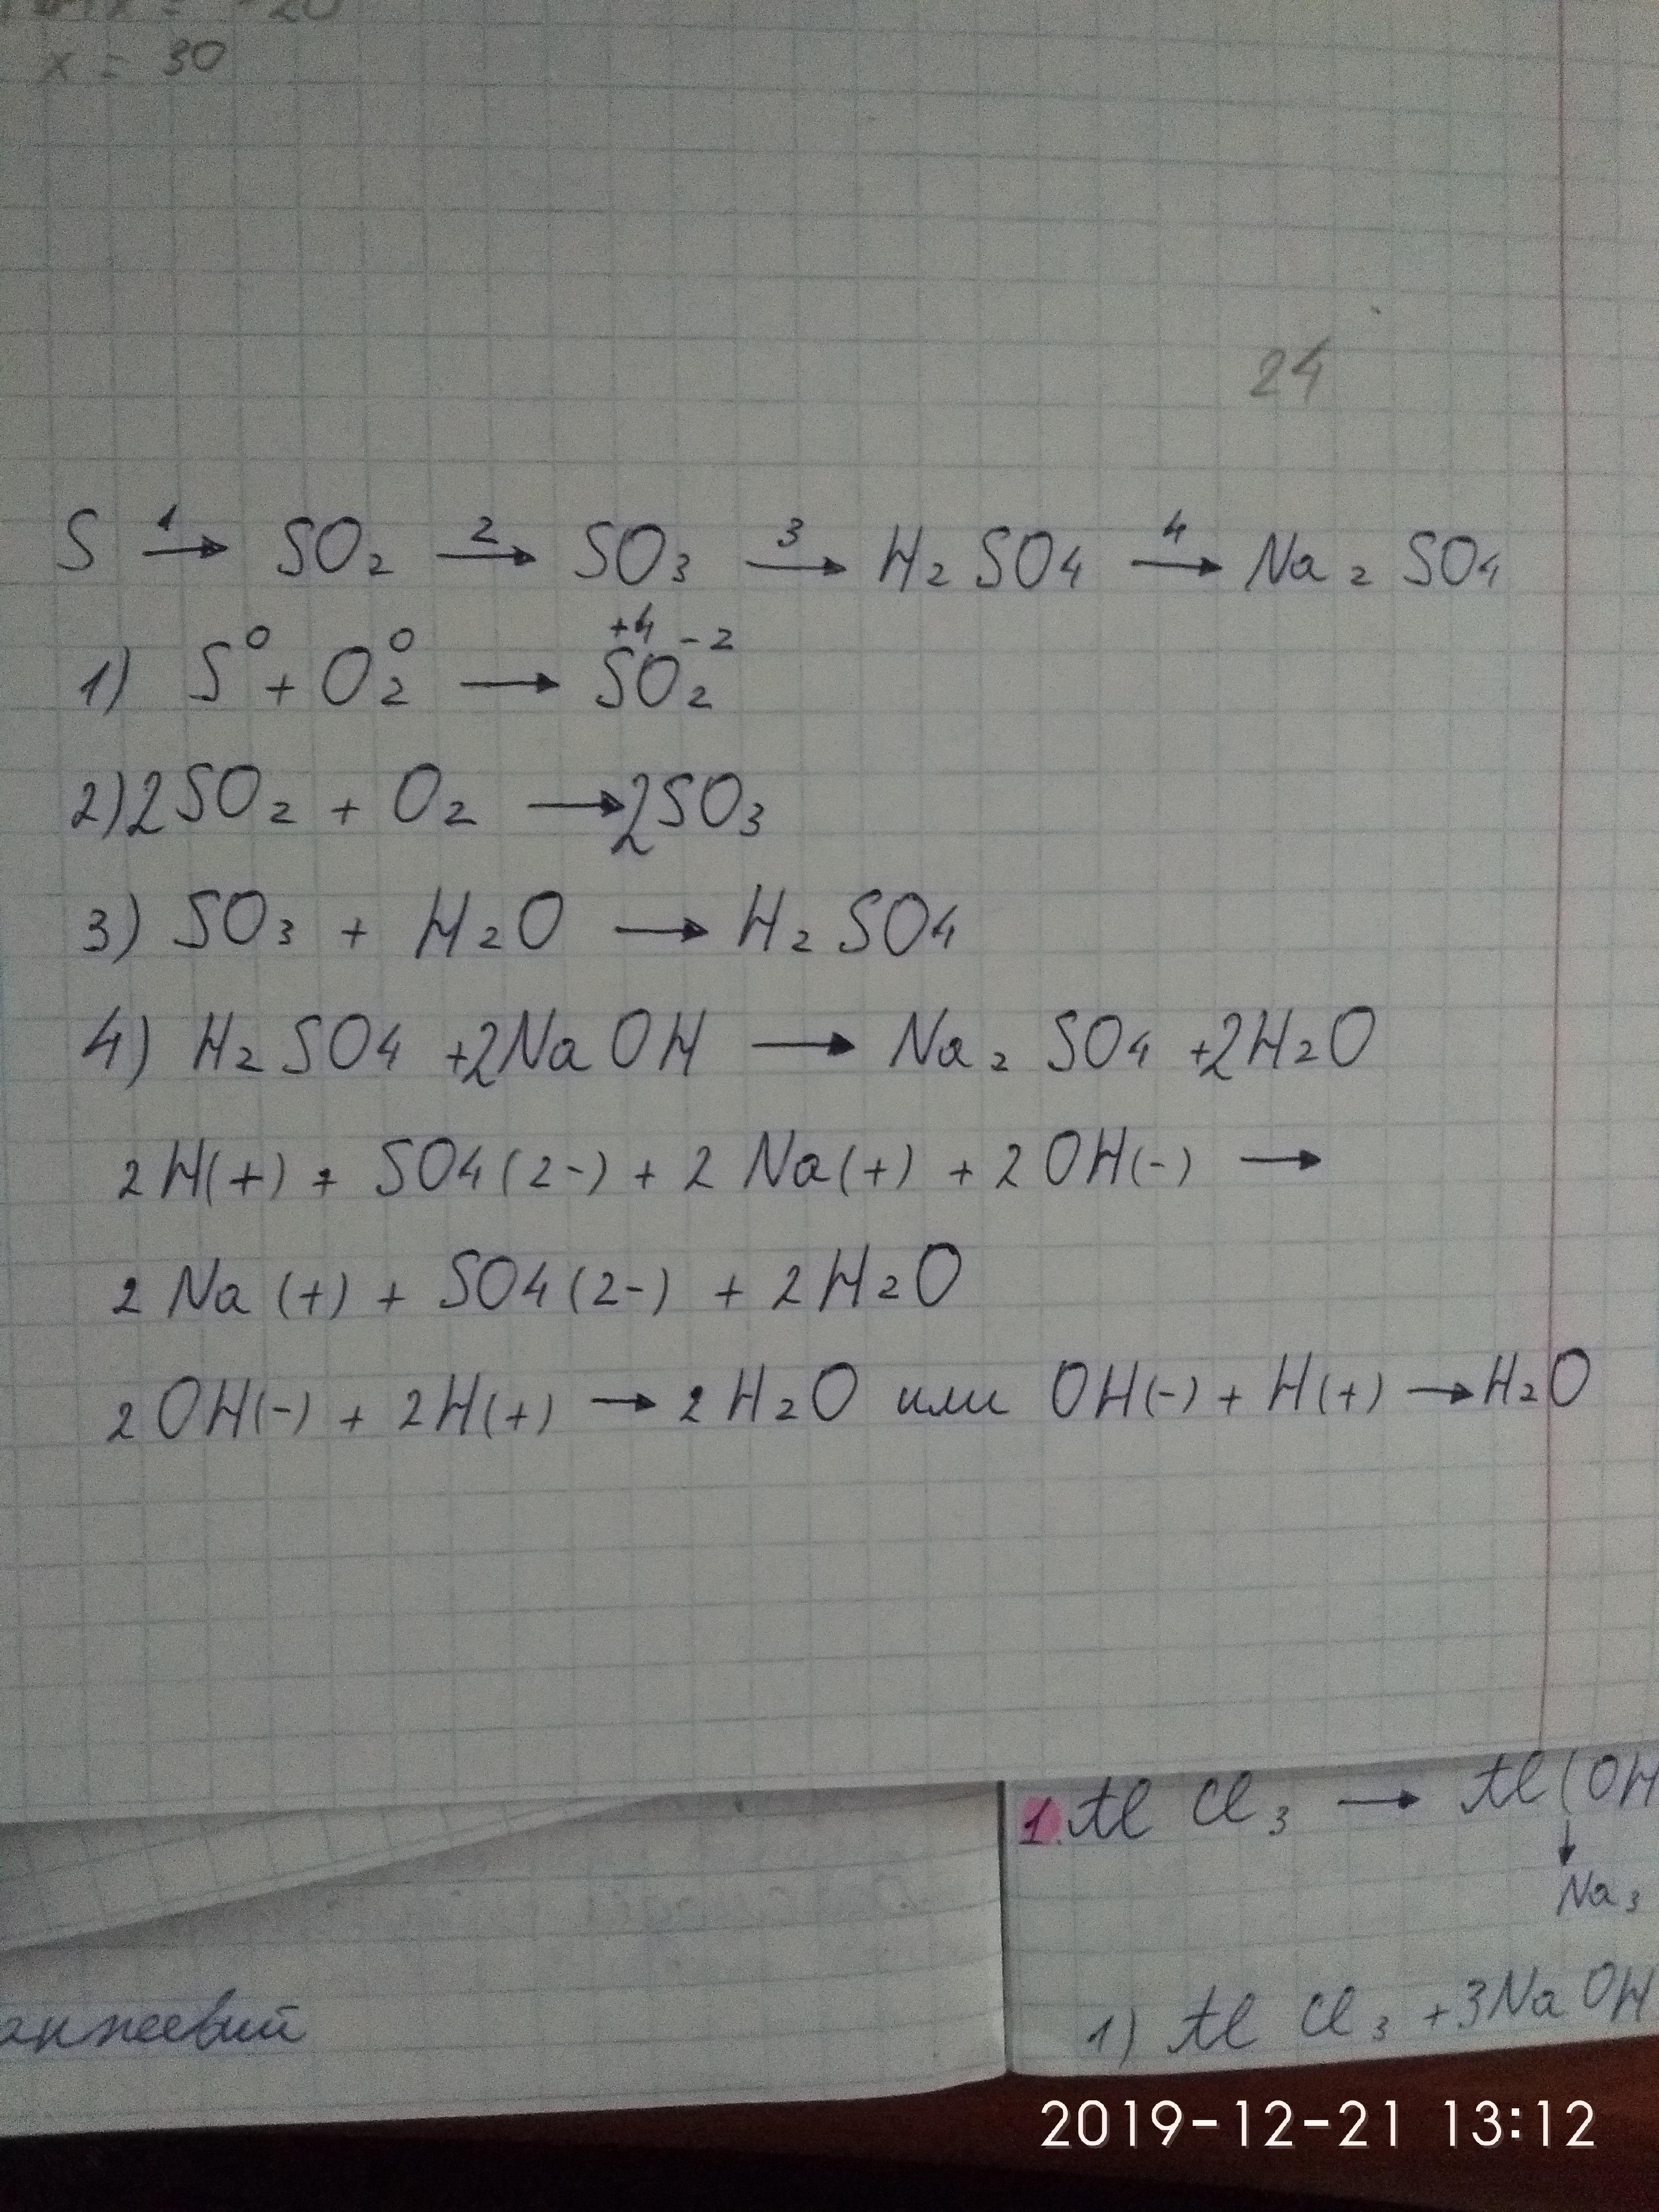 x = 30
24
S 1→ SO₂ 2→ SO₃ 3→ H₂SO₄ 4→ Na₂SO₄
1) S⁰ + O₂⁰ → S⁺⁴O₂⁻²
2) 2SO₂ + O₂ → 2SO₃
3) SO₃ + H₂O → H₂SO₄
4) H₂SO₄ + 2NaOH → Na₂SO₄ + 2H₂O
2H(+) + SO₄(2-) + 2Na(+) + 2OH(-) →
2Na(+) + SO₄(2-) + 2H₂O
2OH(-) + 2H(+) → 2H₂O или OH(-) + H(+) → H₂O
1. AlCl₃ → Al(OH
↓
Na₃
1) AlCl₃ + 3NaOH
анжевий
2019-12-21 13:12